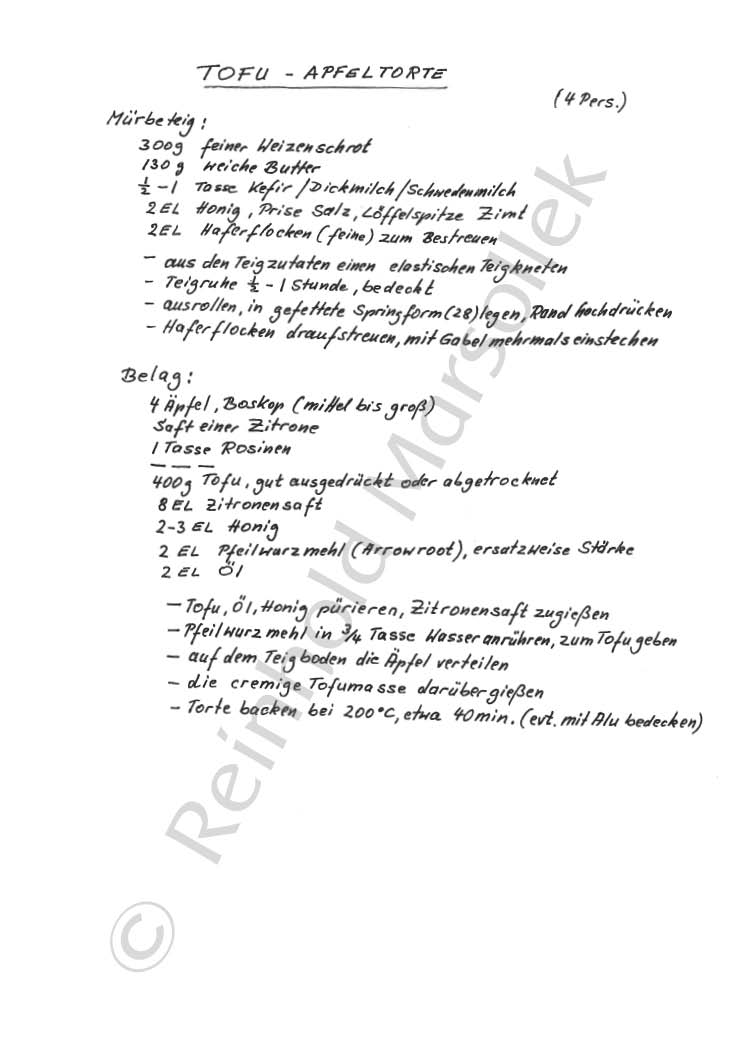 TOFU - APFELTORTE
(4 Pers.)
Mürbeteig:
300g feiner Weizenschrot
130 g weiche Butter
½ - 1 Tasse Kefir / Dickmilch / Schwedenmilch
2 EL Honig, Prise Salz, Löffelspitze Zimt
2 EL Haferflocken (feine) zum Bestreuen
- aus den Teigzutaten einen elastischen Teig kneten
- Teigruhe ½ - 1 Stunde, bedeckt
- ausrollen, in gefettete Springform (28) legen, Rand hochdrücken
- Haferflocken draufstreuen, mit Gabel mehrmals einstechen
Belag:
4 Äpfel, Boskop (mittel bis groß)
Saft einer Zitrone
1 Tasse Rosinen
400g Tofu, gut ausgedrückt oder abgetrocknet
8 EL Zitronensaft
2-3 EL Honig
2 EL Pfeilwurzmehl (Arrowroot), ersatzweise Stärke
2 EL Öl
- Tofu, Öl, Honig pürieren, Zitronensaft zugießen
- Pfeilwurzmehl in ¾ Tasse Wasser anrühren, zum Tofu geben
- auf dem Teigboden die Äpfel verteilen
- die cremige Tofumasse darübergießen
- Torte backen bei 200°C, etwa 40 min. (evt. mit Alu bedecken)
© Reinhold Marsollek